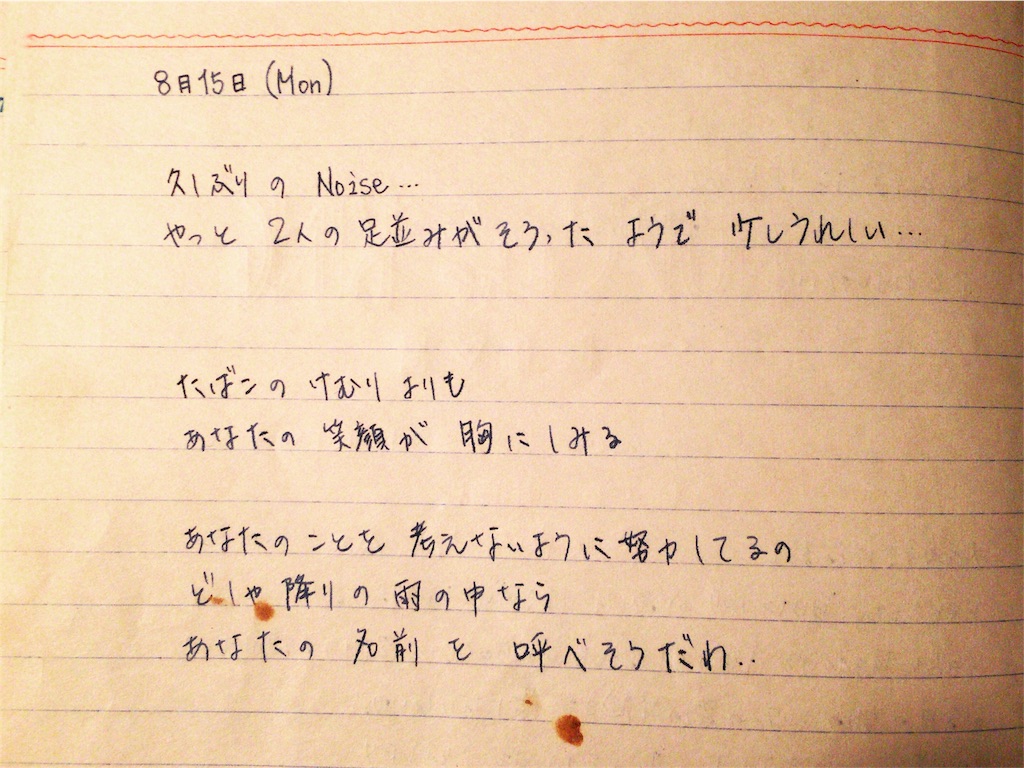 8月15日 (Mon)
久しぶりの Noise…
やっと 2人の 足並みが そろった ようで 少しうれしい…
たばこの けむり よりも
あなたの 笑顔が 胸に しみる
あなたの ことを 考えないように 努力してるの
どしゃ降りの 雨の中なら
あなたの 名前を 呼べそうだわ..